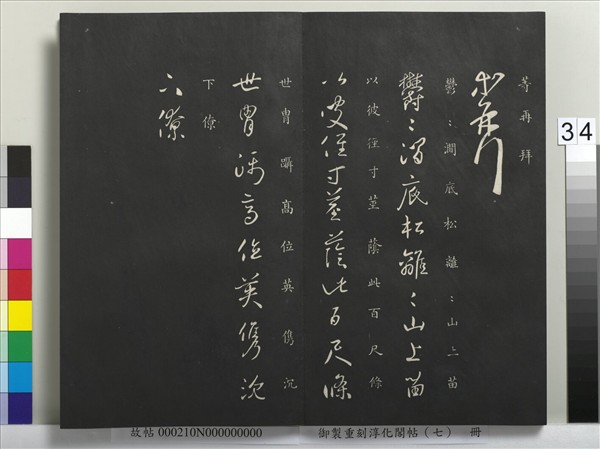 等再拜
等再拜
鬱﹕澗底松離﹕山上苗
鬱﹕澗底松離﹕山上苗
以彼徑寸莖蔭此百尺條
以彼徑寸莖蔭此百尺條
世胄躡高位英儁沉
世胄躡高位英儁沉
下僚
下僚
34
故帖 000210N000000000 御製重刻淳化閣帖(七) 冊